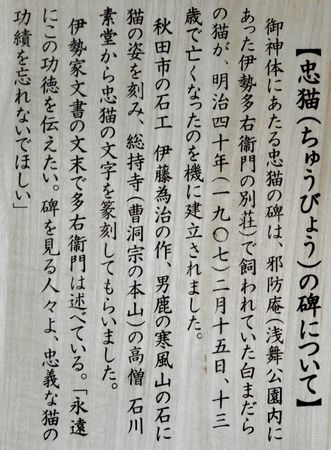 【忠猫(ちゅうびょう)の碑について】
御神体にあたる忠猫の碑は、邪防庵(浅舞公園内に
あった伊勢多右衛門の別荘)で飼われていた白まだら
の猫が、明治四十年(一九〇七)二月十五日、十三
歳で亡くなったのを機に建立されました。
秋田市の石工 伊藤為治の作、男鹿の寒風山の石に
猫の姿を刻み、総持寺(曹洞宗の本山)の高僧 石川
素堂から忠猫の文字を篆刻してもらいました。
伊勢家文書の文末で多右衛門は述べている。「永遠
にこの功徳を伝えたい。碑を見る人々よ、忠義な猫の
功績を忘れないでほしい」